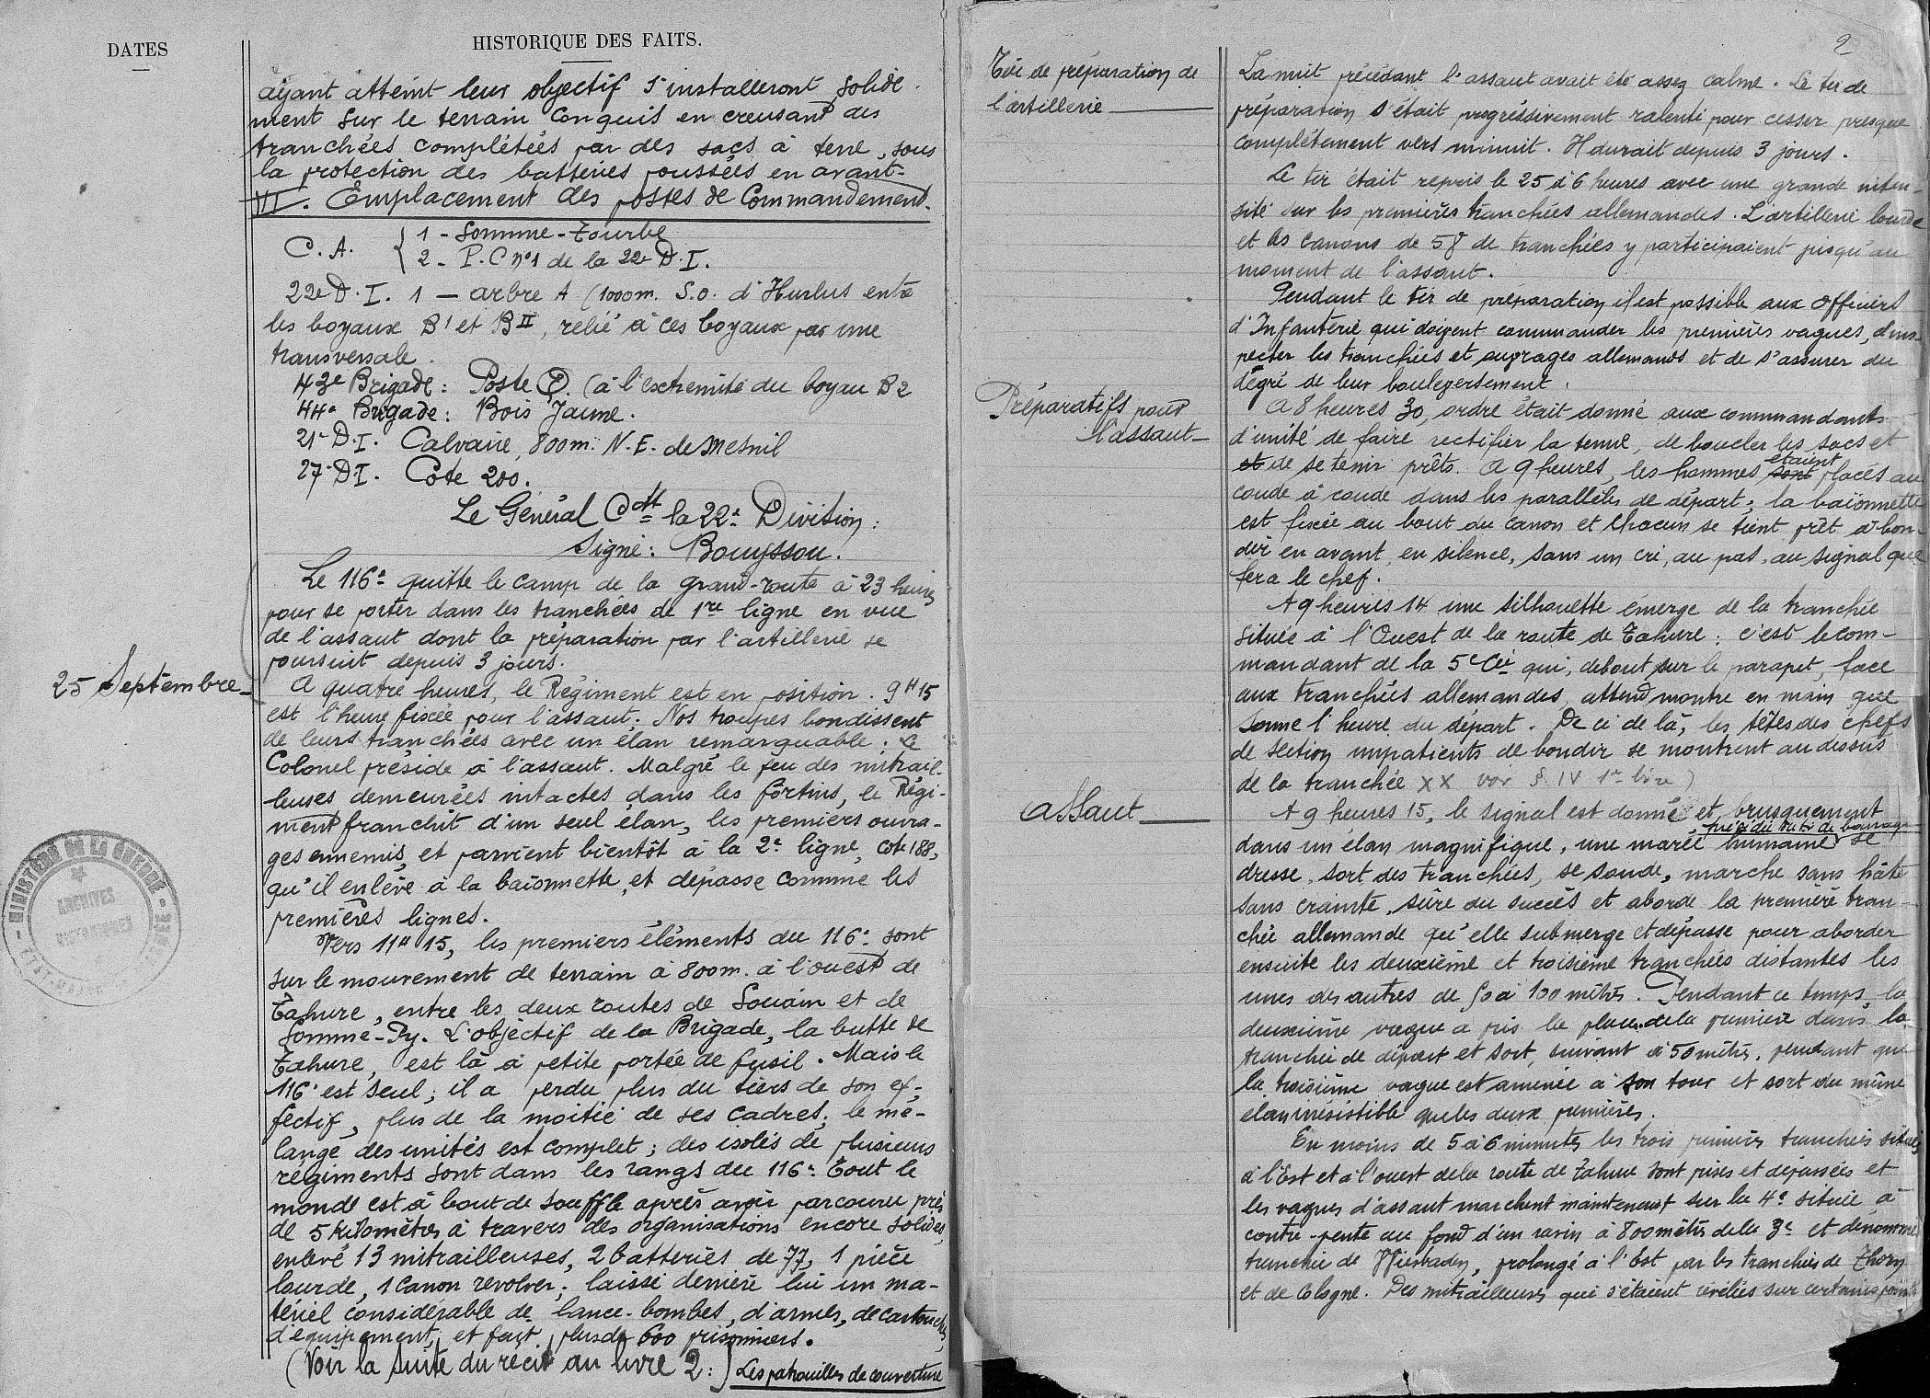 DATES
HISTORIQUE DES FAITS.
ayant atteint leur objectif s'installeront solide-
ment sur le terrain conquis en creusant des
tranchées complétées par des sacs à terre, sous
la protection des batteries poussées en avant.
VII. Emplacement des postes de Commandement.
C.A. { 1 - Somme-Tourbe
2 - P.C n°1 de la 22e D.I.
22e D.I. 1 — arbre A (1000m. S.O. d'Hurlus entre
les boyaux B1 et BII, relié à ces boyaux par une
transversale.
43e Brigade: Poste P. (à l'extrémité du boyau B2
44e Brigade: Bois Jaune.
21e D.I. Calvaire, 800m. N.E. de Mesnil
27e D.I. Cote 200.
Le Général Cdt la 22e Division:
Signé: Bouyssou.
Le 116e quitte le camp de la grand-route à 23 heures
pour se porter dans les tranchées de 1re ligne en vue
de l'assaut dont la préparation par l'artillerie se
poursuit depuis 3 jours.
25 Septembre
A quatre heures, le Régiment est en position. 9H15
est l'heure fixée pour l'assaut. Nos troupes bondissent
de leurs tranchées avec un élan remarquable; Le
Colonel préside à l'assaut. Malgré le feu des mitrail-
leuses demeurées intactes dans les fortins, le Régi-
ment franchit d'un seul élan, les premiers ouvra-
ges ennemis, et parvient bientôt à la 2e ligne, cote 188,
qu'il enlève à la baïonnette, et dépasse comme les
premières lignes.
Vers 11H15, les premiers éléments du 116e sont
sur le mouvement de terrain à 800m. à l'ouest de
Tahure, entre les deux routes de Souain et de
Somme-Py. L'objectif de la Brigade, la butte de
Tahure, est là à petite portée de fusil. Mais le
116e est seul; il a perdu plus du tiers de son ef-
fectif, plus de la moitié de ses cadres, le mé-
lange des unités est complet; des isolés de plusieurs
régiments sont dans les rangs du 116e. Tout le
monde est à bout de souffle après avoir parcouru près
de 5 kilomètres à travers des organisations encore solides,
enlevé 13 mitrailleuses, 2 batteries de 77, 1 pièce
lourde, 1 canon revolver; laissé derrière lui un ma-
tériel considérable de lance-bombes, d'armes, de cartouches,
d'équipement, et fait plus de 600 prisonniers.
(Voir la suite du récit au livre 2:) Les patrouilles de couverture
MINISTÈRE DE LA GUERRE
ARCHIVES
HISTORIQUES
2
Tir de préparation de
l'artillerie
La nuit précédant l'assaut avait été assez calme. Le tir de
préparation s'était progressivement ralenti pour cesser presque
complètement vers minuit. Il durait depuis 3 jours.
Le tir était repris le 25 à 6 heures avec une grande inten-
sité sur les premières tranchées allemandes. L'artillerie lourde
et les canons de 58 de tranchées y participaient jusqu'au
moment de l'assaut.
Pendant le tir de préparation il est possible aux officiers
d'Infanterie qui doivent commander les premières vagues, d'ins-
pecter les tranchées et ouvrages allemands et de s'assurer du
degré de leur bouleversement.
Préparatifs pour
l'assaut
A 8 heures 30, ordre était donné aux commandants
d'unité de faire rectifier la tenue, de boucler les sacs et
et de se tenir prêts. A 9 heures, les hommes sont étaient placés au
coude à coude dans les parallèles de départ; la baïonnette
est fixée au bout du canon et chacun se tient prêt à bon-
dir en avant, en silence, sans un cri, au pas, au signal que
fera le chef.
A 9 heures 14 une silhouette émerge de la tranchée
située à l'Ouest de la route de Tahure: c'est le com-
mandant de la 5e Cie qui, debout sur le parapet, face
aux tranchées allemandes, attend montre en main que
sonne l'heure du départ. De ci de là, les têtes des chefs
de section impatients de bondir se montrent au dessus
de la tranchée XX voir §. IV 1er livre)
Assaut
A 9 heures 15, le signal est donné et, brusquement
dans un élan magnifique, une marée humaine, se
dresse, sort des tranchées, se soude, marche sans hâte
sans crainte, sûre du succès et aborde la première tran-
chée allemande qu'elle submerge et dépasse pour aborder
ensuite les deuxième et troisième tranchées distantes les
unes des autres de 50 à 100 mètres. Pendant ce temps, la
deuxième vague a pris la place de la première dans la
tranchée de départ et sort, suivant à 50 mètres, pendant que
la troisième vague est amenée à son tour et sort du même
élan irrésistible que les deux premières.
En moins de 5 à 6 minutes les trois premières tranchées situées
à l'Est et à l'ouest de la route de Tahure sont prises et dépassées et
les vagues d'assaut marchent maintenant sur la 4e située à
contre-pente au fond d'un ravin à 800 mètres de la 3e et dénommée
tranchée de Wiesbaden, prolongé à l'Est par les tranchées de Thorn
et de Cologne. Des mitrailleuses qui s'étaient révélées sur certains points